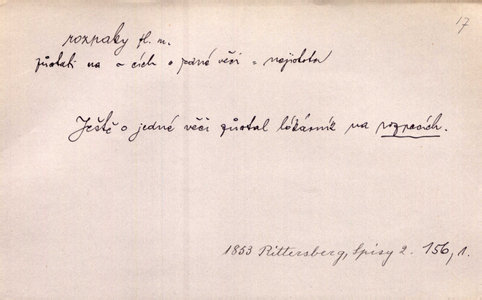 17
rozpaky pl. m.
zůstati na ~ cích o jedné věci = nejistota
Ještě o jedné věci zůstal lékárník na rozpacích.
1853 Rittersberg, Spisy 2. 156, 1.